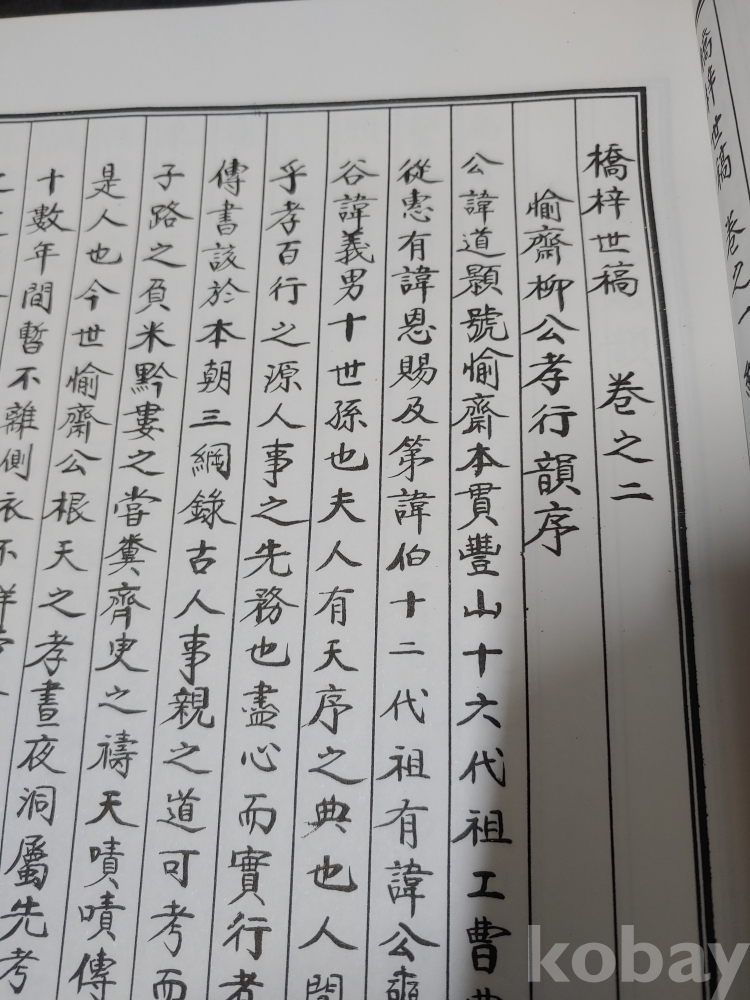 橋梓世稿 卷之二
愉齋柳公孝行韻序
公諱道顯號愉齋本貫豐山十六代祖工曹典
從惠有諱恩賜及第諱伯十二代祖有諱公奭
谷諱義男十世孫也夫人有天序之典也人間
乎孝百行之源人事之先務也盡心而實行者
傳書該於本朝三綱錄古人事親之道可考而
子路之負米黔婁之嘗糞齊叟之禱天嘖嘖傳
是人也今世愉齋公根天之孝晝夜洞屬先考
十數年間暫不離側衣不
橋梓世稿 卷之
kobay